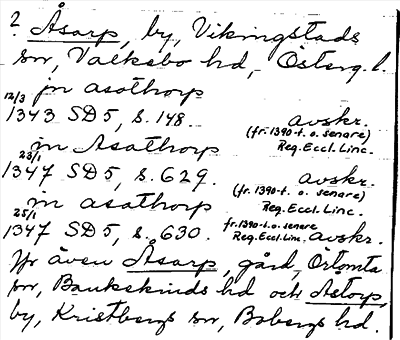 ? Åsarp, by, Vikingstads
sn, Valkebo hd, Österg. l.
jn asathorp
12/3
1343 SD 5, s. 148. avskr.
(fr. 1390-t. o. senare)
Reg. Eccl. Linc.
in Asathorp
23/1
1347 SD 5, s. 629. avskr.
(fr. 1390-t. o. senare)
Reg. Eccl. Linc.
in asathorp
25/1
1347 SD 5, s. 630. fr. 1390-t. o. senare
Reg. Eccl. Linc. avskr.
Jfr även Åsarp, gård, Örtomta
sn, Bankekinds hd och Åstorp,
by, Kristbergs sn, Bobergs hd.